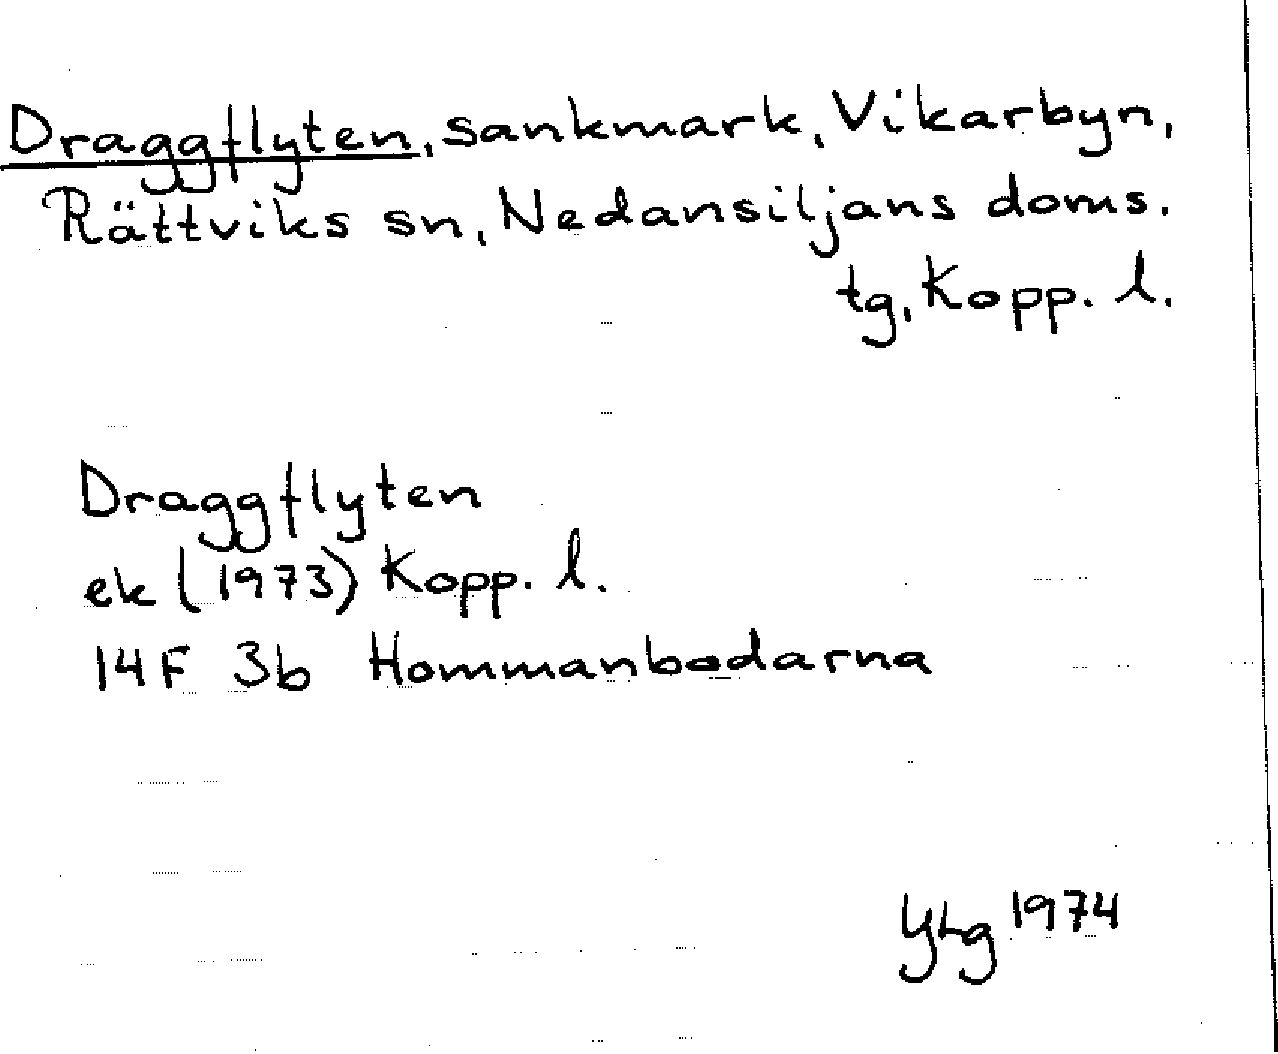 Draggflyten, sankmark, Vikarbyn,
Rättviks sn, Nedansiljans doms.
tg, Kopp. l.
Draggflyten
ek (1973) Kopp. l.
14F 3b Hommanbodarna
YLg 1974